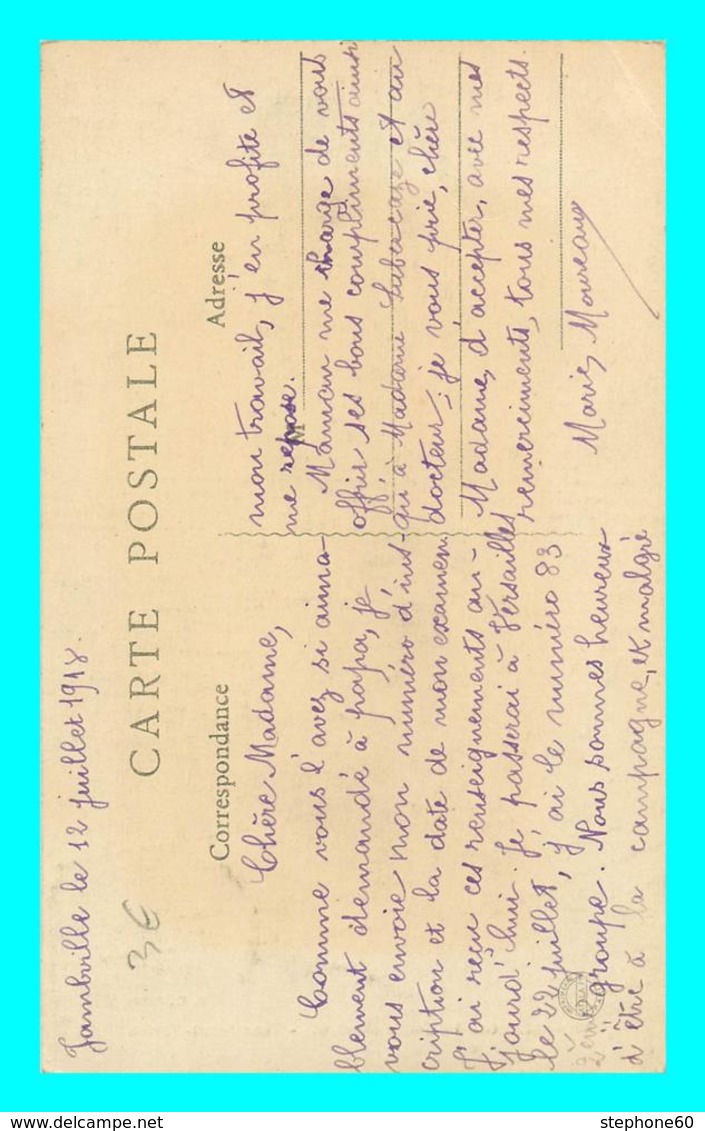 Jambville le 12 juillet 1918.
3€
CARTE POSTALE
Correspondance
Adresse
Chère Madame,
Comme vous l'avez si aima-
blement demandé à papa, je
vous envoie mon numéro d'ins-
cription et la date de mon examen.
J'ai reçu ces renseignements au-
jourd'hui. Je passerai à Versailles
le 22 juillet, j'ai le numéro 83
2ème groupe. Nous sommes heureux
d'être à la campagne, et malgré
mon travail, j'en profite et
me repose.
M
Maman me charge de vous
offrir ses bons compliments ainsi
qu'à Madame et au
docteur; je vous prie, chère
Madame, d'accepter, avec mes
remerciments, tous mes respects.
Marie Moureaux
stephone60